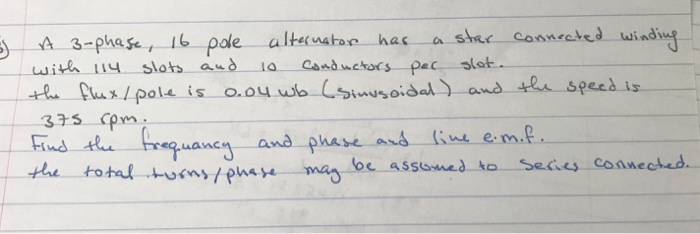 A 3-phase, 16 pole alternator has a star connected winding
with 114 slots and 10 conductors per slot.
the flux/pole is 0.04 wb (sinusoidal) and the speed is
375 rpm.
Find the frequancy and phase and line e.m.f.
the total turns/phase may be assumed to series connected.